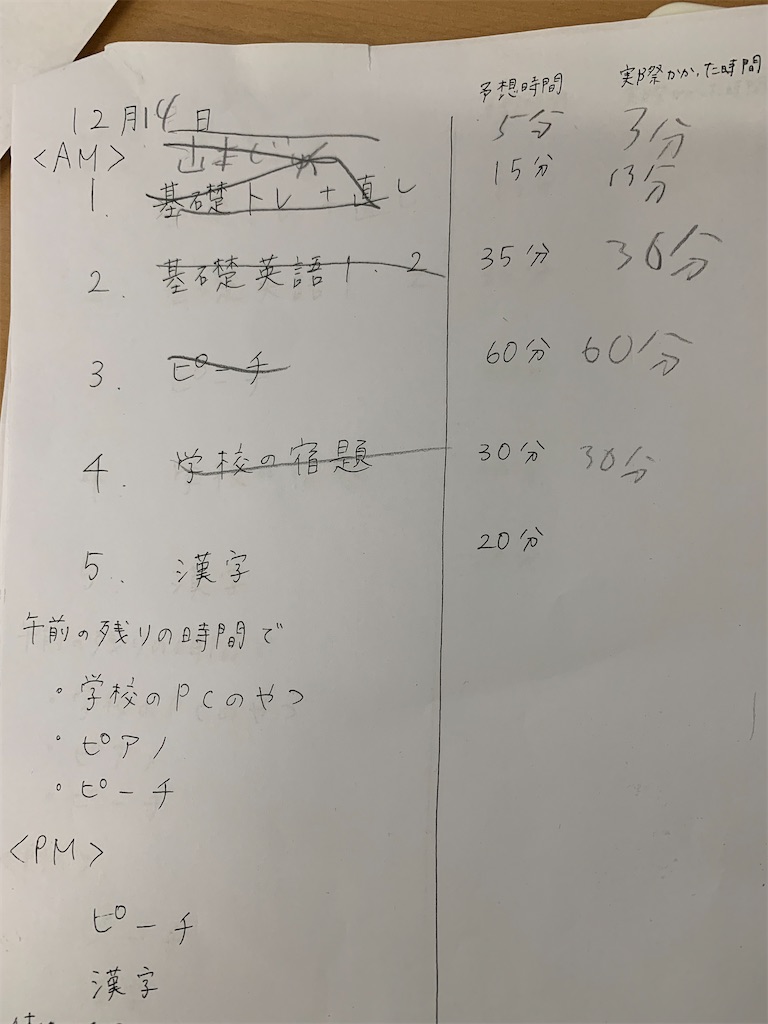 予想時間 実際かかった時間
12月14日
5分 3分
<AM>
1. 基礎トレ+直し 15分 13分
2. 基礎英語1.2 35分 30分
3. ピーチ 60分 60分
4. 学校の宿題 30分 30分
5. 漢字 20分
午前の残りの時間で
・学校のPCのやつ
・ピアノ
・ピーチ
<PM>
ピーチ
漢字